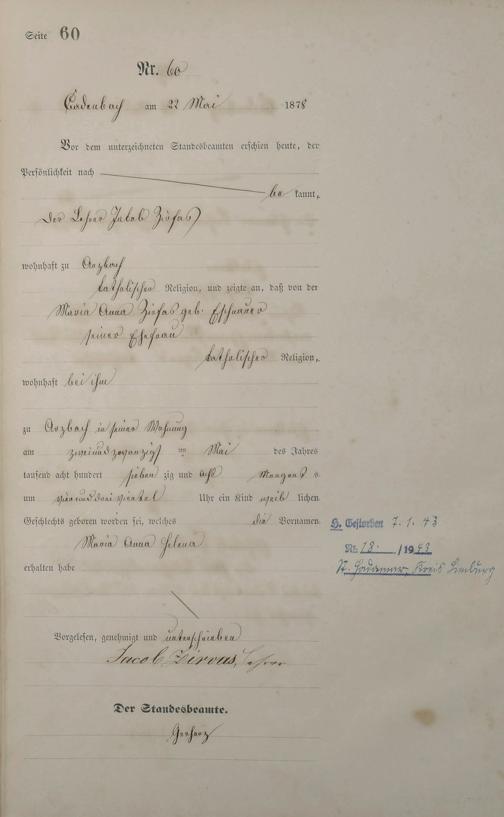 Seite 60
Nr. 60
Cadenbach am 22 Mai 1878
Vor dem unterzeichneten Standesbeamten erschien heute, der
Persönlichkeit nach
be kannt,
der Lehrer Jakob
wohnhaft zu Arzbach
katholischer Religion, und zeigte an, daß von der
Maria Anna geb.
seiner Ehefrau
katholischer Religion,
wohnhaft bei ihm
zu Arzbach in seiner Wohnung
am zweiundzwanzigsten Mai des Jahres
tausend acht hundert sieben zig und acht Morgens
um vier und drei viertel Uhr ein Kind weib lichen
Geschlechts geboren worden sei, welches die Vornamen
Maria Anna Helena
erhalten habe
Vorgelesen, genehmigt und unterschrieben
Jacob Lehrer
Der Standesbeamte.
H. Gestorben 7.1.43
Nr. 18. /1943
St. Hadamar, Kreis Limburg